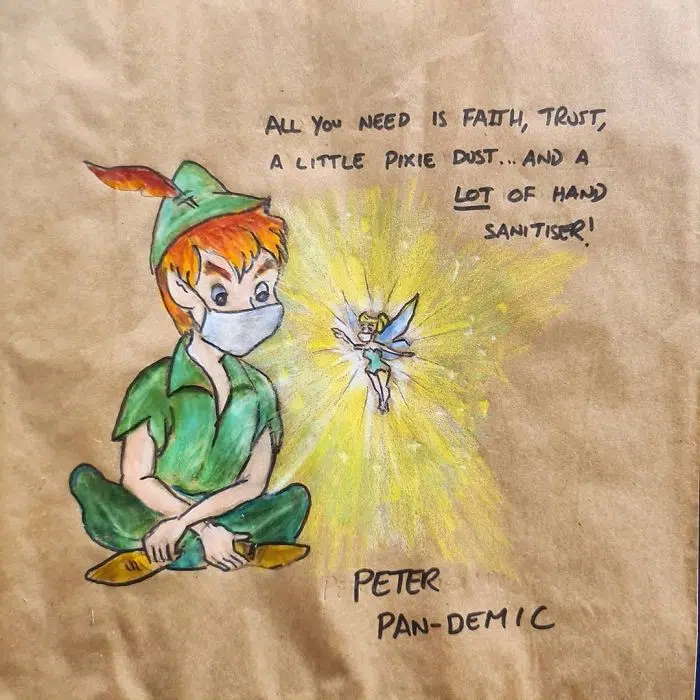 ALL YOU NEED IS FAITH, TRUST,
A LITTLE PIXIE DUST... AND A
LOT OF HAND
SANITISER!
PETER
PAN-DEMIC